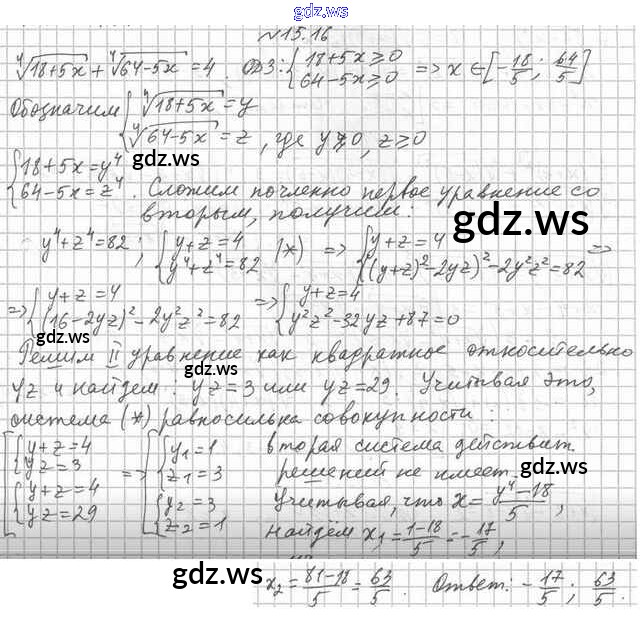 gdz.ws
№15.16
⁴√(18+5x) + ⁴√(64-5x) = 4. ОДЗ: {18+5x⩾0 {64-5x⩾0 => x∈[-18/5; 64/5]
Обозначим {⁴√(18+5x)=y
{⁴√(64-5x)=z, где y⩾0, z⩾0
gdz.ws
{18+5x=y⁴
{64-5x=z⁴. Сложим почленно первое уравнение со
вторым, получим:
gdz.ws
y⁴+z⁴=82; {y+z=4 {y⁴+z⁴=82 (*) => {y+z=4 {((y+z)²-2yz)²-2y²z²=82 =>
=> {y+z=4 {(16-2yz)²-2y²z²=82 => {y+z=4 {y²z²-32yz+87=0
gdz.ws
Решим II уравнение как квадратное относительно
yz и найдем: yz=3 или yz=29. Учитывая это,
система (*) равносильна совокупности:
[{y+z=4 {yz=3 {y+z=4 {yz=29 => [{y₁=1 {z₁=3 {y₂=3 {z₂=1
вторая система действит.
решений не имеет.
Учитывая, что x=(y⁴-18)/5,
найдём x₁=(1-18)/5=-17/5,
gdz.ws
gdz.ws
x₂=(81-18)/5=63/5. Ответ: -17/5; 63/5.